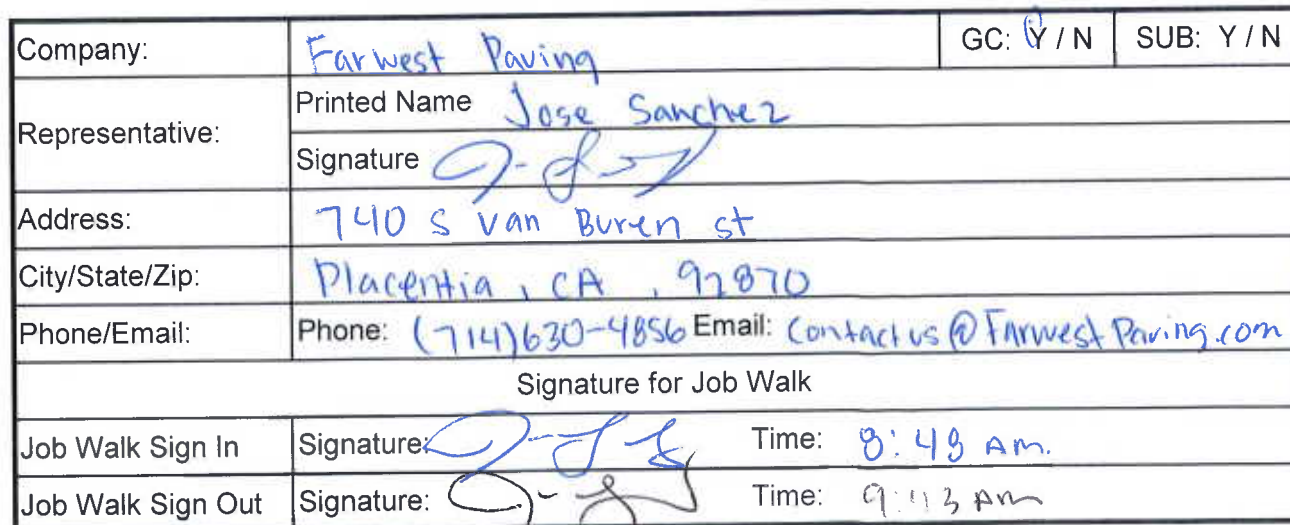 Company: Farwest Paving GC: Y / N SUB: Y / N
Representative: Printed Name Jose Sanchez
Signature
Address: 740 S Van Buren st
City/State/Zip: Placentia, CA, 92870
Phone/Email: Phone: (714)630-4856 Email: Contactus@FarwestPaving.com
Signature for Job Walk
Job Walk Sign In Signature: Time: 8:48 AM.
Job Walk Sign Out Signature: Time: 9:13 AM